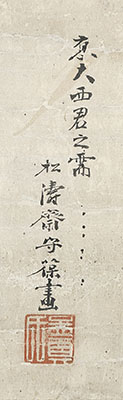 應大西君之需
松濤齋守葆畫